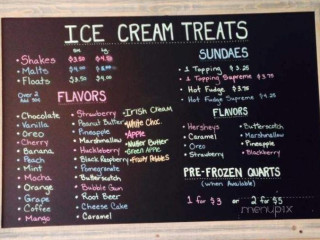 ICE CREAM TREATS
sm lg
• Shakes $3.50 $4.50
• Malts
• Floats $3.50 $4.00
Over 2
Add 50¢
FLAVORS
• Chocolate
• Vanilla
• Oreo
• Cherry
• Banana
• Peach
• Mint
• Mocha
• Orange
• Grape
• Coffee
• Mango
• Strawberry
• Peanut Butter
• Pineapple
• Marshmallow
• Huckleberry
• Black Raspberry
• Pomegranate
• Butterscotch
• Bubble Gum
• Root Beer
• Cheese Cake
• Caramel
• Irish Cream
• White Choc
• Apple
• Nutter Butter
• Green Apple
• Fruity Pebbles
SUNDAES
• 1 Topping $3.25
• 1 Topping Supreme $3.75
• Hot Fudge $3.50
• Hot Fudge Supreme $4.25
FLAVORS
• Hersheys
• Caramel
• Oreo
• Strawberry
• Butterscotch
• Marshmallow
• Pineapple
• Blackberry
PRE-FROZEN QUARTS
(when Available)
1 for $3 or 2 for $5
menupix